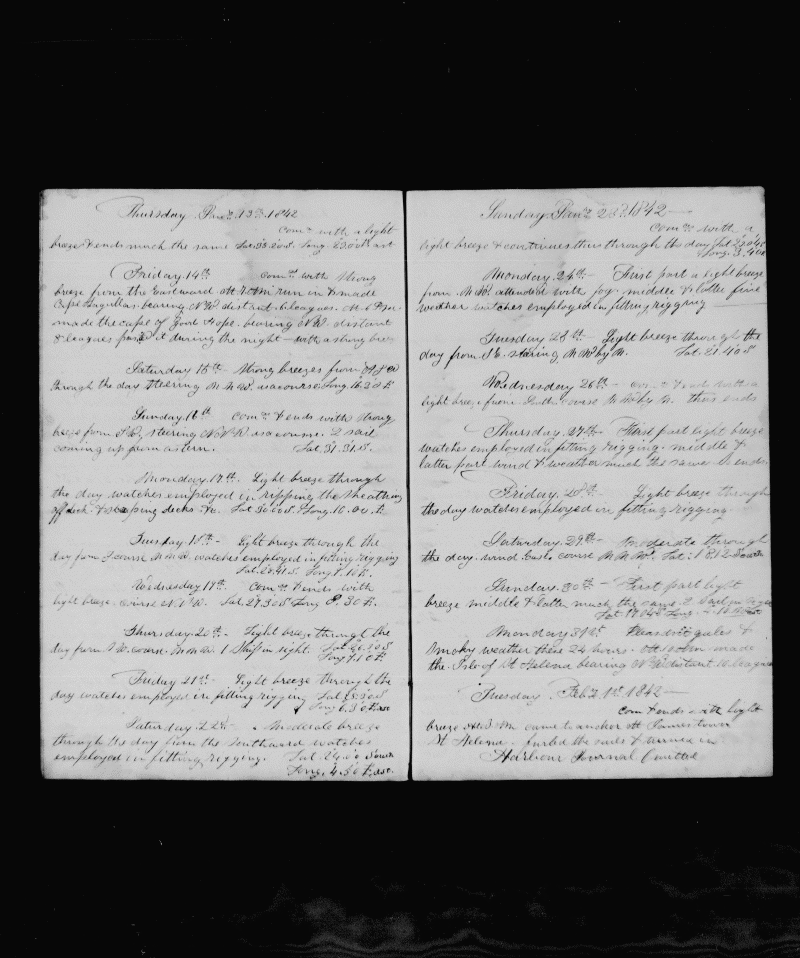 Thursday Jany 13th 1842
Comce with a light
breeze & ends much the same Lat. 35.20 S. Long.
Friday 14th Comce with strong
breeze from the Eastward At 7 AM run in & made
Cape Lagullas bearing NW distant leagues. At 6 PM
made the cape of Good Hope bearing NW distant
8 leagues pass'd it during the night with a strong breeze
Saturday 15th Strong breezes from
through the day steering W.N.W. as a course Long. 16.20 E
Sunday 16th Comce & ends with strong
breeze from S.E. steering N.W. as a course. 2 sail
coming up from astern. Lat. 31.31 S.
Monday 17th. Light breeze through
the day watches employed in ripping the sheathing
off deck & scraping decks &c. Lat 30.00 S. Long. 10.00 E
Tuesday 18th - light breeze through the
day from S course N.N.W. watches employed in fitting rigging
Lat. 28.41 S. Long 9.10 E.
Wednesday 19th Comce & ends with
light breeze. course N.W. Lat. 27.30 S Long 8.30 E.
Thursday 20th - Light breeze through the
day from course N.N.W. 1 Ship in sight. Lat
Long 7.10 E
Friday 21st - Light breeze through the
day watches employed in fitting rigging Lat
Long 6.30 E
Saturday 22nd - Moderate breeze
through the day from the Southward watches
employed in fitting rigging. Lat. 24.00 South
Long. 4.30 E.
Sunday Jany 23d 1842
Comce with a
light breeze & continues thus through the day Lat
Long. 3.40 E
Monday 24th - First part a light breeze
from attended with fog. middle & latter fine
weather watches employed in fitting rigging
Tuesday 25th - Light breeze through the
day from S.E. staring N W by W. Lat. 21.40 S
Wednesday 26th - & ends with a
light breeze from South course N W by N. thus ends
Thursday 27th - First part light breeze
watches employed in fitting rigging. middle &
latter part wind & weather much the same ends.
Friday 28th - Light breeze through
the day watches employed in fitting rigging
Saturday 29th - moderate through
the day. wind East course N.N.W. Lat. 18.12 South
Sunday 30th - First part light
breeze middle & latter much the same
Lat. 17.04 S Long.
Monday 31st Pleasant gales &
smoky weather these 24 hours. At 10 AM made
the Isle of St Helena bearing N W distant 10 leagues
Tuesday Feby 1st 1842
Com & ends with light
breeze At came to anchor at James town
St Helena. furled the sails & turned in
Harbour Journal Omitted